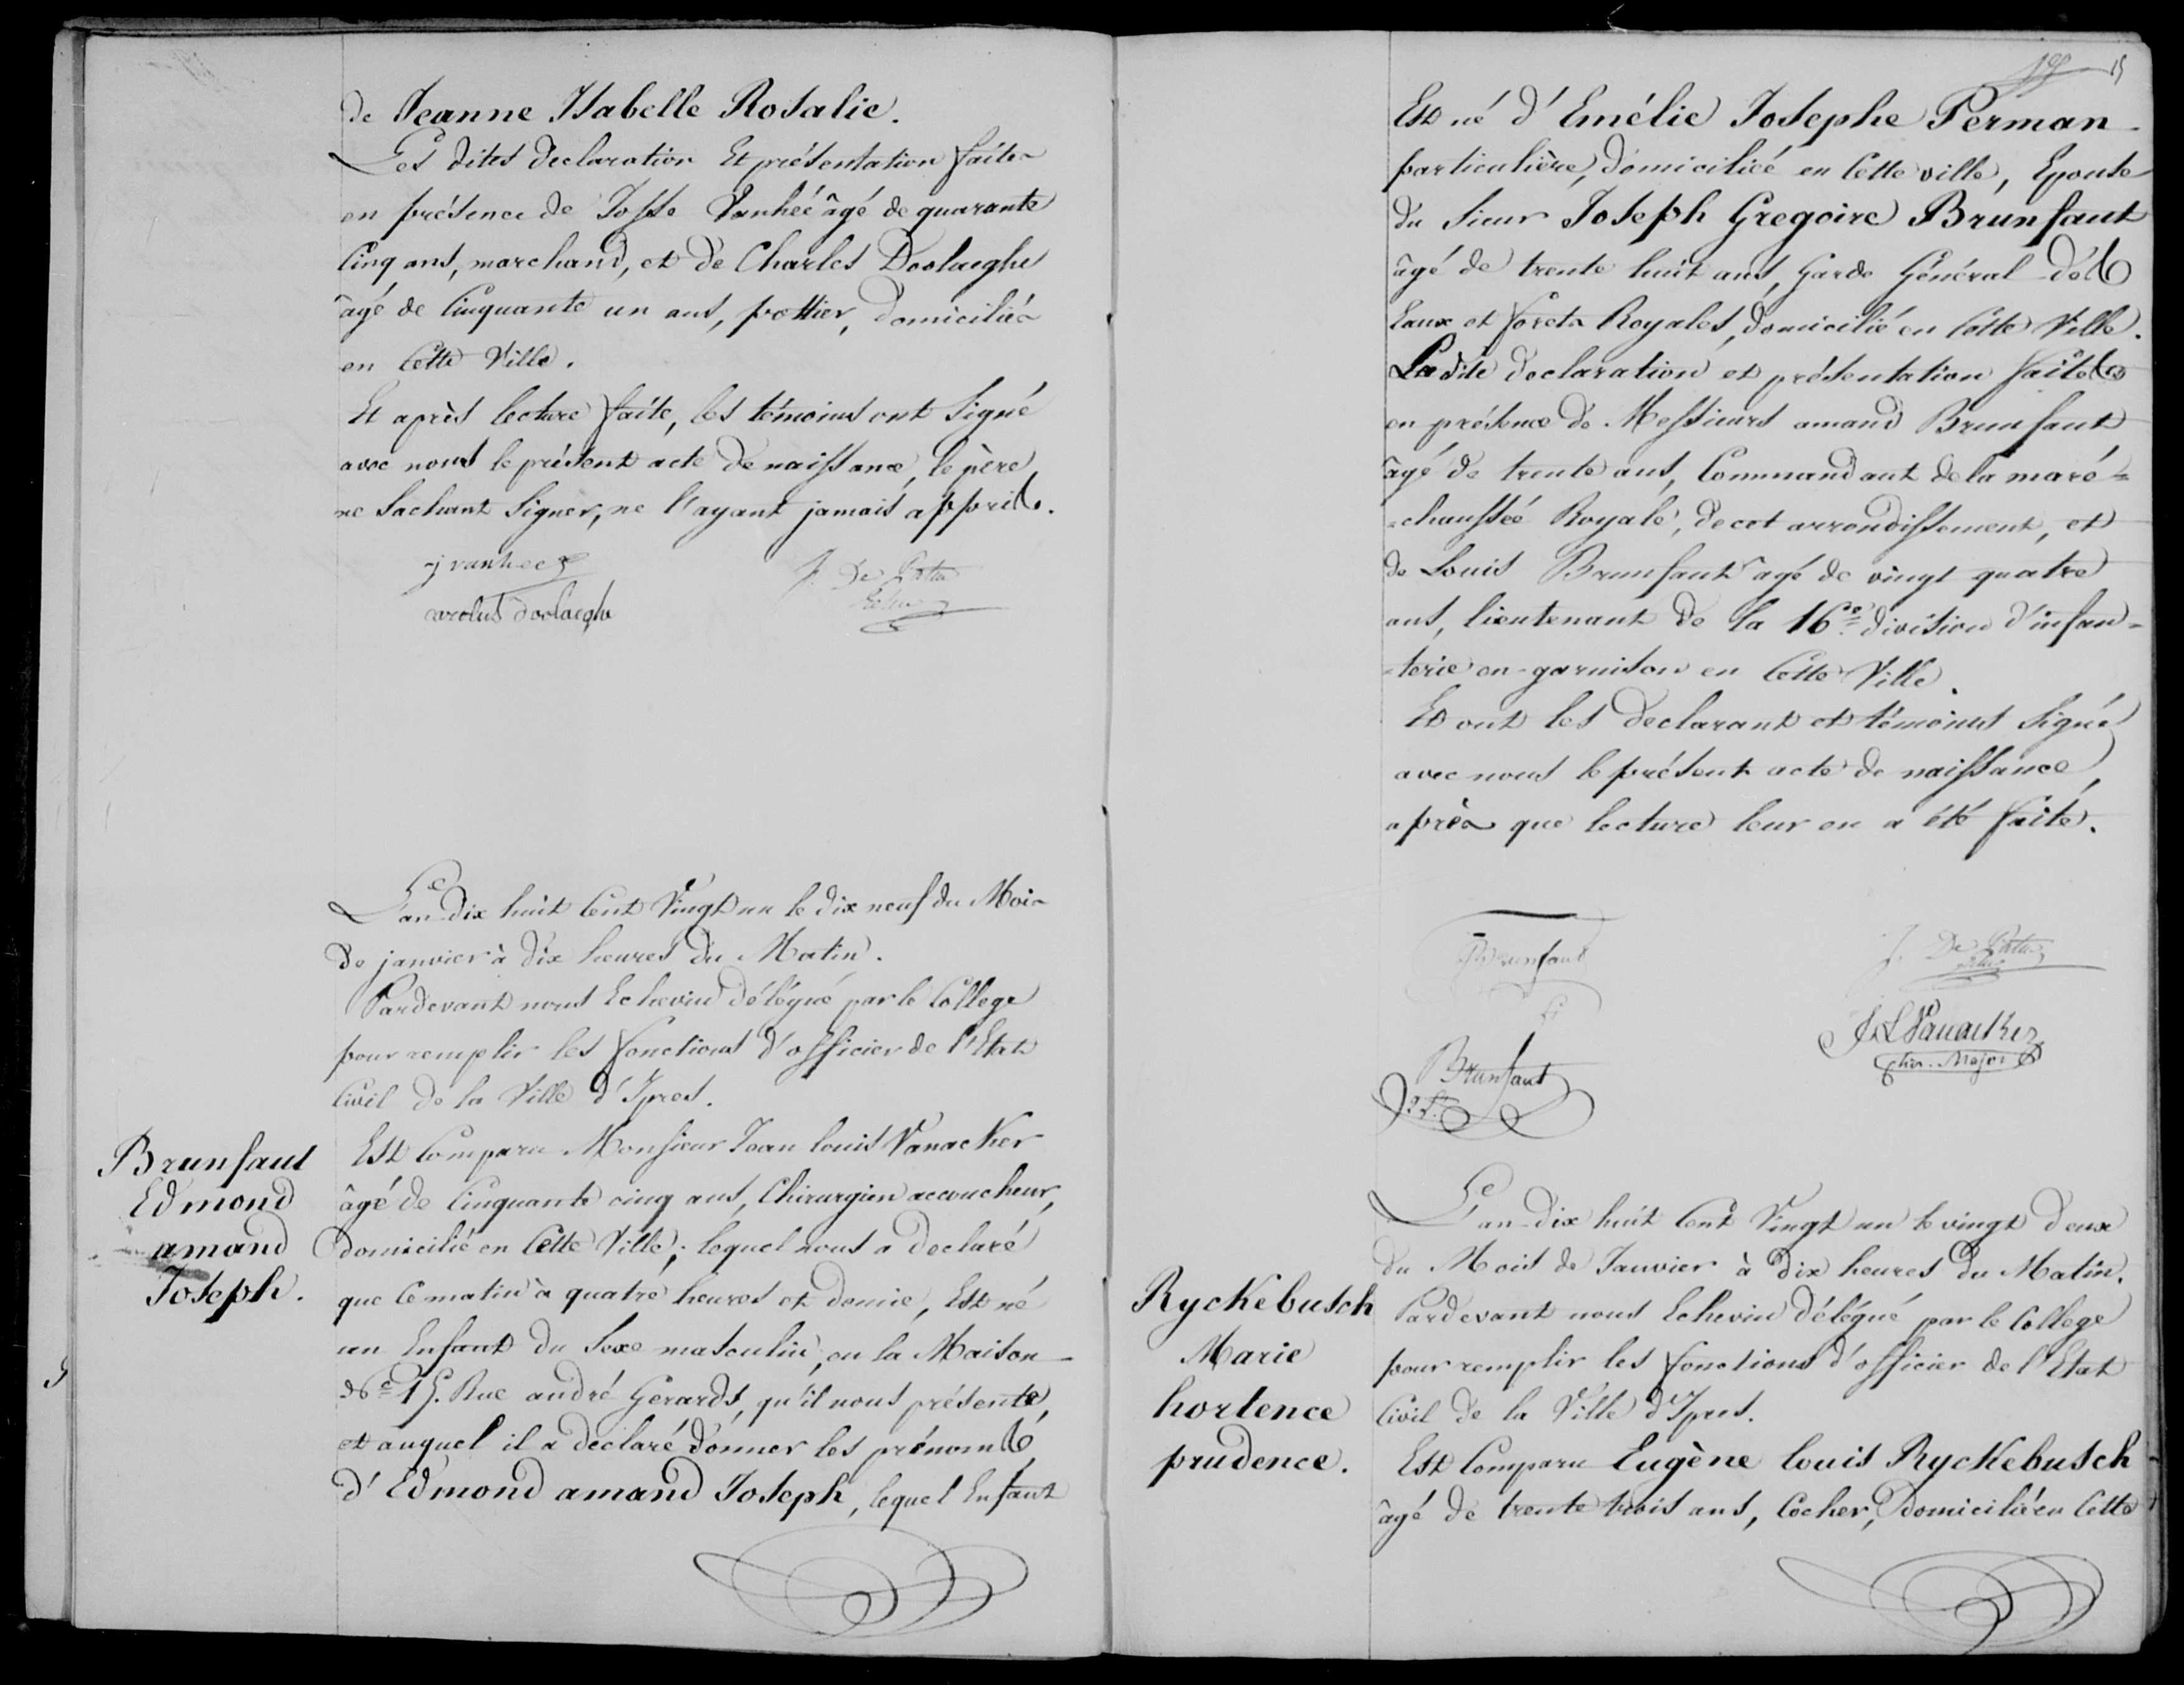 de Jeanne Isabelle Rosalie.
Les dites declaration Et présentation faites
en présence de Josse Vanhée âgé de quarante
Cinq ans, marchand, et de Charles Doolaeghe
âgé de Cinquante un ans, pottier, domiciliés
en Cette Ville.
Et après lecture faite, les témoins ont Signé
avec nous le présent acte de naissance, le père
ne Sachant Signer, ne l'ayant jamais appris.
j vanhee
J. De
carolus doolaeghe
L'an dix huit Cent Vingt un le dix neuf du Mois
de janvier à dix heures du Matin.
Pardevant nous Echevin délégué par le College
pour remplir les fonctions d'officier de l'Etat
Civil de la Ville d'Ipres.
Brunfaut
Edmond
amand
Joseph.
Est Comparu Monsieur Jean louis Vanacker
âgé de Cinquante cinq ans, Chirurgien accoucheur,
domicilié en Cette Ville; lequel nous a declaré
que Ce matin à quatre heures et demie, Est né
un Enfant du Sexe masculin, en la Maison
Rue andré Gerards, qu'il nous présente,
et auquel il a declaré donner les prénoms
d'Edmond amand Joseph, lequel Enfant
15
Est né d'Emélie Josephe Perman
particulière, domiciliée en Cette ville, Epouse
du Sieur Joseph Gregoire Brunfaut
âgé de trente huit ans, Garde Général des
Eaux et forets Royales, domicilié en Cette Ville.
La dite declaration et présentation faites
en présence de Messieurs amand Brunfaut
âgé de trente ans, Commandant de la maré=
=chaussée Royale, de cet arrondissement, et
de Louis Brunfaut agé de vingt quatre
ans, lieutenant de la 16e division d'infan=
=terie en garnison en Cette Ville.
Et ont les declarant et témoins Signé
avec nous le présent acte de naissance,
après que lecture leur en a été faite.
Brunfaut
J. De
J L Vanacker
Chir. Major
Brunfaut
L'an dix huit Cent Vingt un le vingt deux
du Mois de Janvier à dix heures du Matin.
Pardevant nous Echevin délégué par le College
pour remplir les fonctions d'officier de l'Etat
Civil de la Ville d'Ipres.
Ryckebusch
Marie
hortence
prudence.
Est Comparu Eugène louis Ryckebusch
âgé de trente trois ans, Cocher, domicilié en Cette